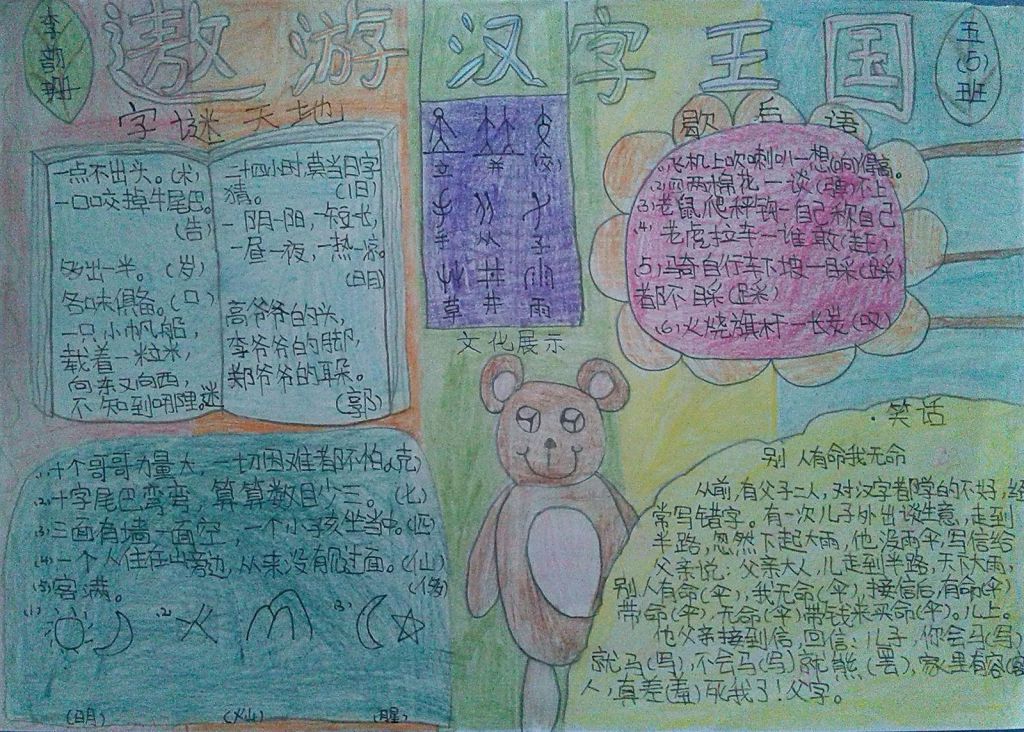 李韵
遨游汉字王国
五(5)班
字谜天地
一点不出头。(术)
一口咬掉牛尾巴。
(告)
多出一半。(岁)
各味俱备。(口)
一只小帆船,
载着一粒米,
向东又向西,
不知到哪哩。迷
二十四小时莫当日字
猜。(旧)
一阴一阳,一短一长,
一昼一夜,一热一凉。
(明)
高爷爷的头,
李爷爷的脚,
郑爷爷的耳朵。
(郭)
立 并 (交)
手 从 子
草 井 雨
文化展示
歇后语
(1)飞机上吹喇叭一想(响)得高。
(2)两棉花一谈(弹)不上
(3)老鼠爬秤钩一自己称自己
(4)老虎拉车一谁敢(赶)
(5)冯奇自行车下坡一目采(踩)
都不目采(踩)
(6)火烧旗杆一长炭(叹)
(1)十个哥哥力量大,一切困难都不怕。(克)
(2)十字尾巴弯弯,算算数目少三。(七)
(3)三面有墙一面空,一个小孩坐当中。(匹)
(4)一个人住在山旁边,从来没有见过面。(仙)
(5)客满。(侈)
(1) (2) (3)
(明) (灿) (腥)
笑话
别人有命我无命
从前,有父子二人,对汉字都学的不好,经
常写错字。有一次儿子外出谈生意,走到
半路,忽然下起大雨,他没两伞,写信给
父亲说:父亲大人,儿走到半路,天下大雨,
别人有命(伞),我无命(伞),接信后,有命(伞)
带命(伞),无命(伞)带钱来买命(伞)。儿上。
他父亲接到信,回信:儿子,你会马(写)
就马(写),不会马(写)就熊(罢),家里有容(客)
人,真差(羞)死我了!父字。